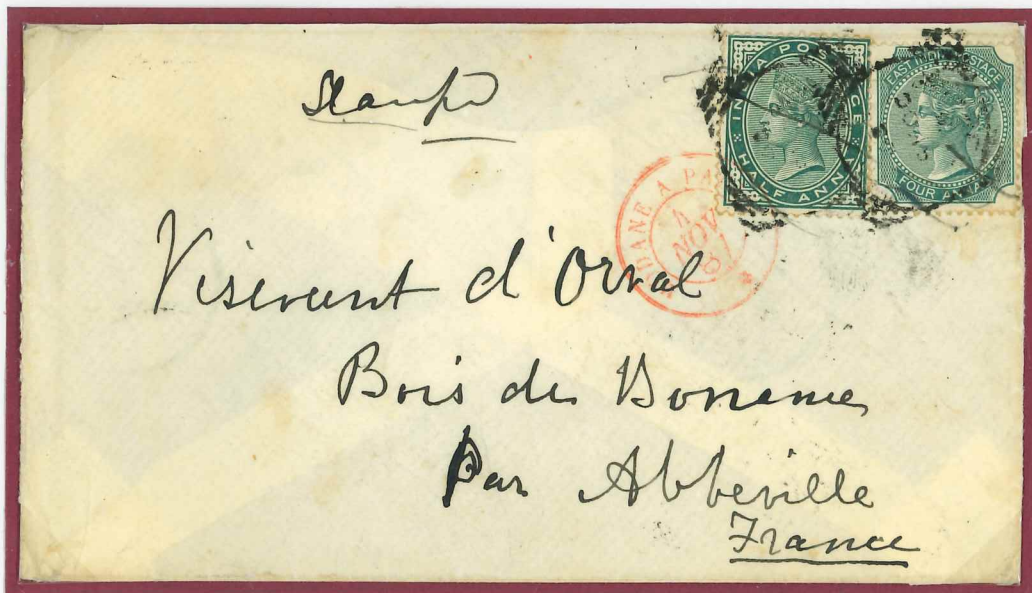 Stamps
INDIA POSTAGE
HALF ANNA
EAST INDIA POSTAGE
FOUR ANNAS
MODANE A PARIS
NOV
Viscount d'Orval
Bois de Bonance
Par Abbeville
France